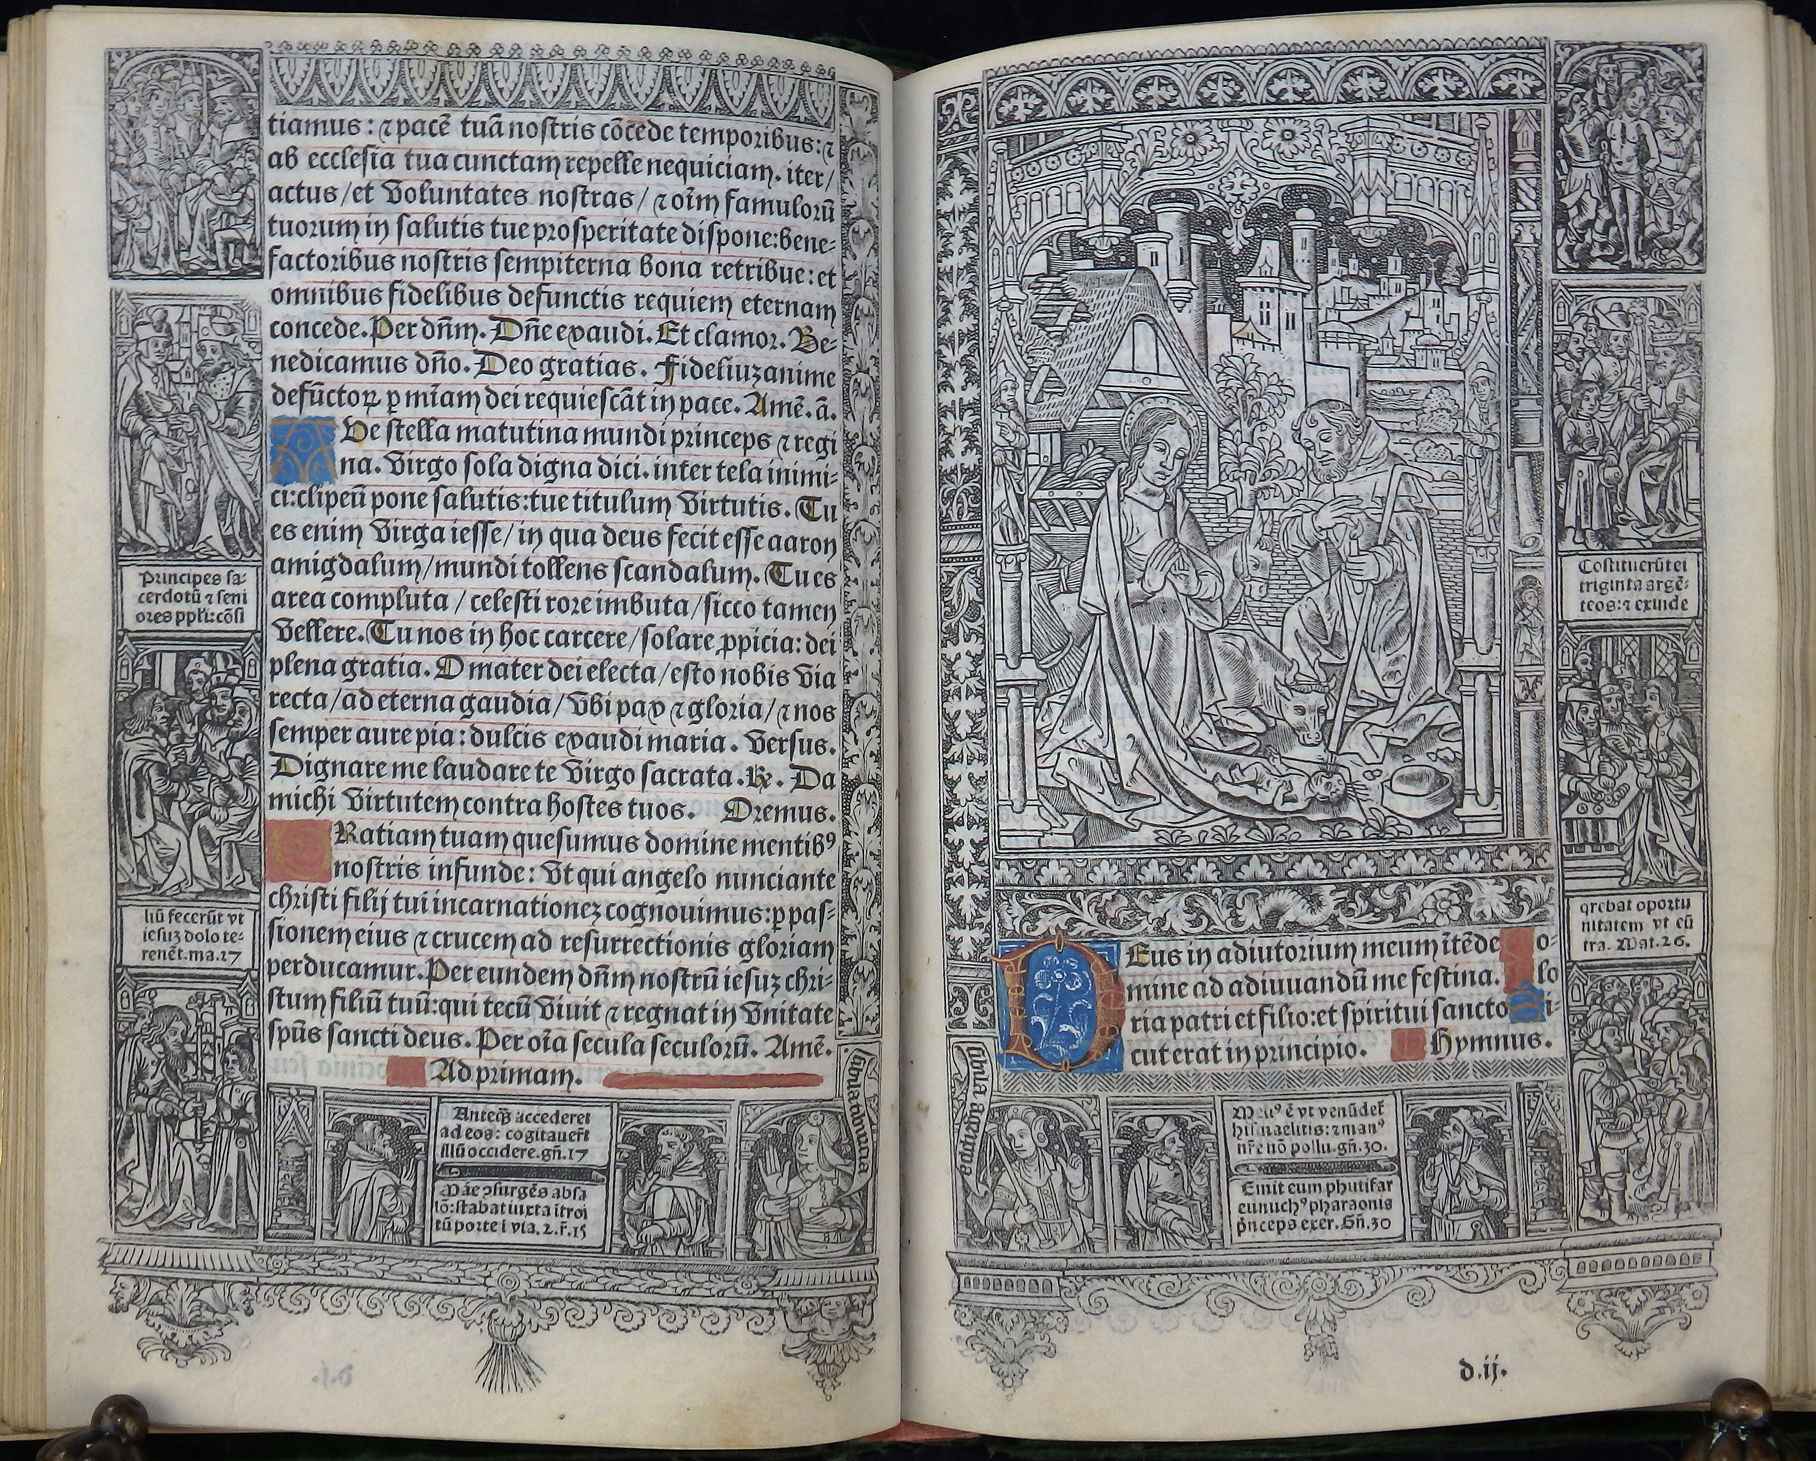 tiamus: ⁊ pacē tuā nostris cōcede temporibus: ⁊
ab ecclesia tua cunctam repelle nequiciam. iter/
actus/et voluntates nostras/ ⁊ oīm famulorū
tuorum in salutis tue prosperitate dispone: bene-
factoribus nostris sempiterna bona retribue: et
omnibus fidelibus defunctis requiem eternam
concede. Per dñm. Dñe exaudi. Et clamor. Be-
nedicamus dño. Deo gratias. Fideliuz anime
defūctoꝝ ꝑ mīam dei requiescāt in pace. Amē. ā.
AVe stella matutina mundi princeps ⁊ regi
na. Virgo sola digna dici. inter tela inimi-
ci: clipeū pone salutis: tue titulum virtutis. Tu
es enim virga iesse/ in qua deus fecit esse aaron
amigdalum/mundi tollens scandalum. Tu es
area compluta / celesti rore imbuta/sicco tamen
vellere. Tu nos in hoc carcere/solare ꝓpicia: dei
plena gratia. O mater dei electa/esto nobis via
recta/ad eterna gaudia/ vbi pax ⁊ gloria/ ⁊ nos
semper aure pia: dulcis exaudi maria. Versus.
Dignare me laudare te virgo sacrata. ℟. Da
michi virtutem contra hostes tuos. Oremus.
GRatiam tuam quesumus domine mentibꝰ
nostris infunde: vt qui angelo nunciante
christi filij tui incarnationez cognouimus: ꝑ pas-
sionem eius ⁊ crucem ad resurrectionis gloriam
perducamur. Per eundem dñm nostrū iesuz chri-
stum filiū tuū: qui tecū viuit ⁊ regnat in vnitate
spūs sancti deus. Per oīa secula seculorū. Amē.
Ad primam.
Principes sa-
cerdotū ⁊ seni
ores ppłi: cōsi
liū fecerūt vt
iesuz dolo te-
renēt. ma. 27
Anteq̄ȝ accederet
ad eos: cogitauerūt
illū occidere. gñ. 17
Māe ꝯsurgēs absa
lō: stabat iuxta ītroi
tū porte ī via. 2. r̄. 15
DEus in adiutorium meum ītēde Do-
mine ad adiuuandū me festina. Glo
ria patri et filio: et spiritui sancto Si-
cut erat in principio. Hymnus.
Cōstituerūt ei
triginta argē-
teos: ⁊ exinde
q̄rebat oportu
nitatem vt eū
tra. Mat. 26.
Meliꝰ ē vt venūdet̄
hismaelitis: ⁊ manꝰ
nr̄e nō pollu. gñ. 30.
Emit eum phutifar
eunuchꝰ pharaonis
p̄nceps exer. Gñ. 30
d. ij.